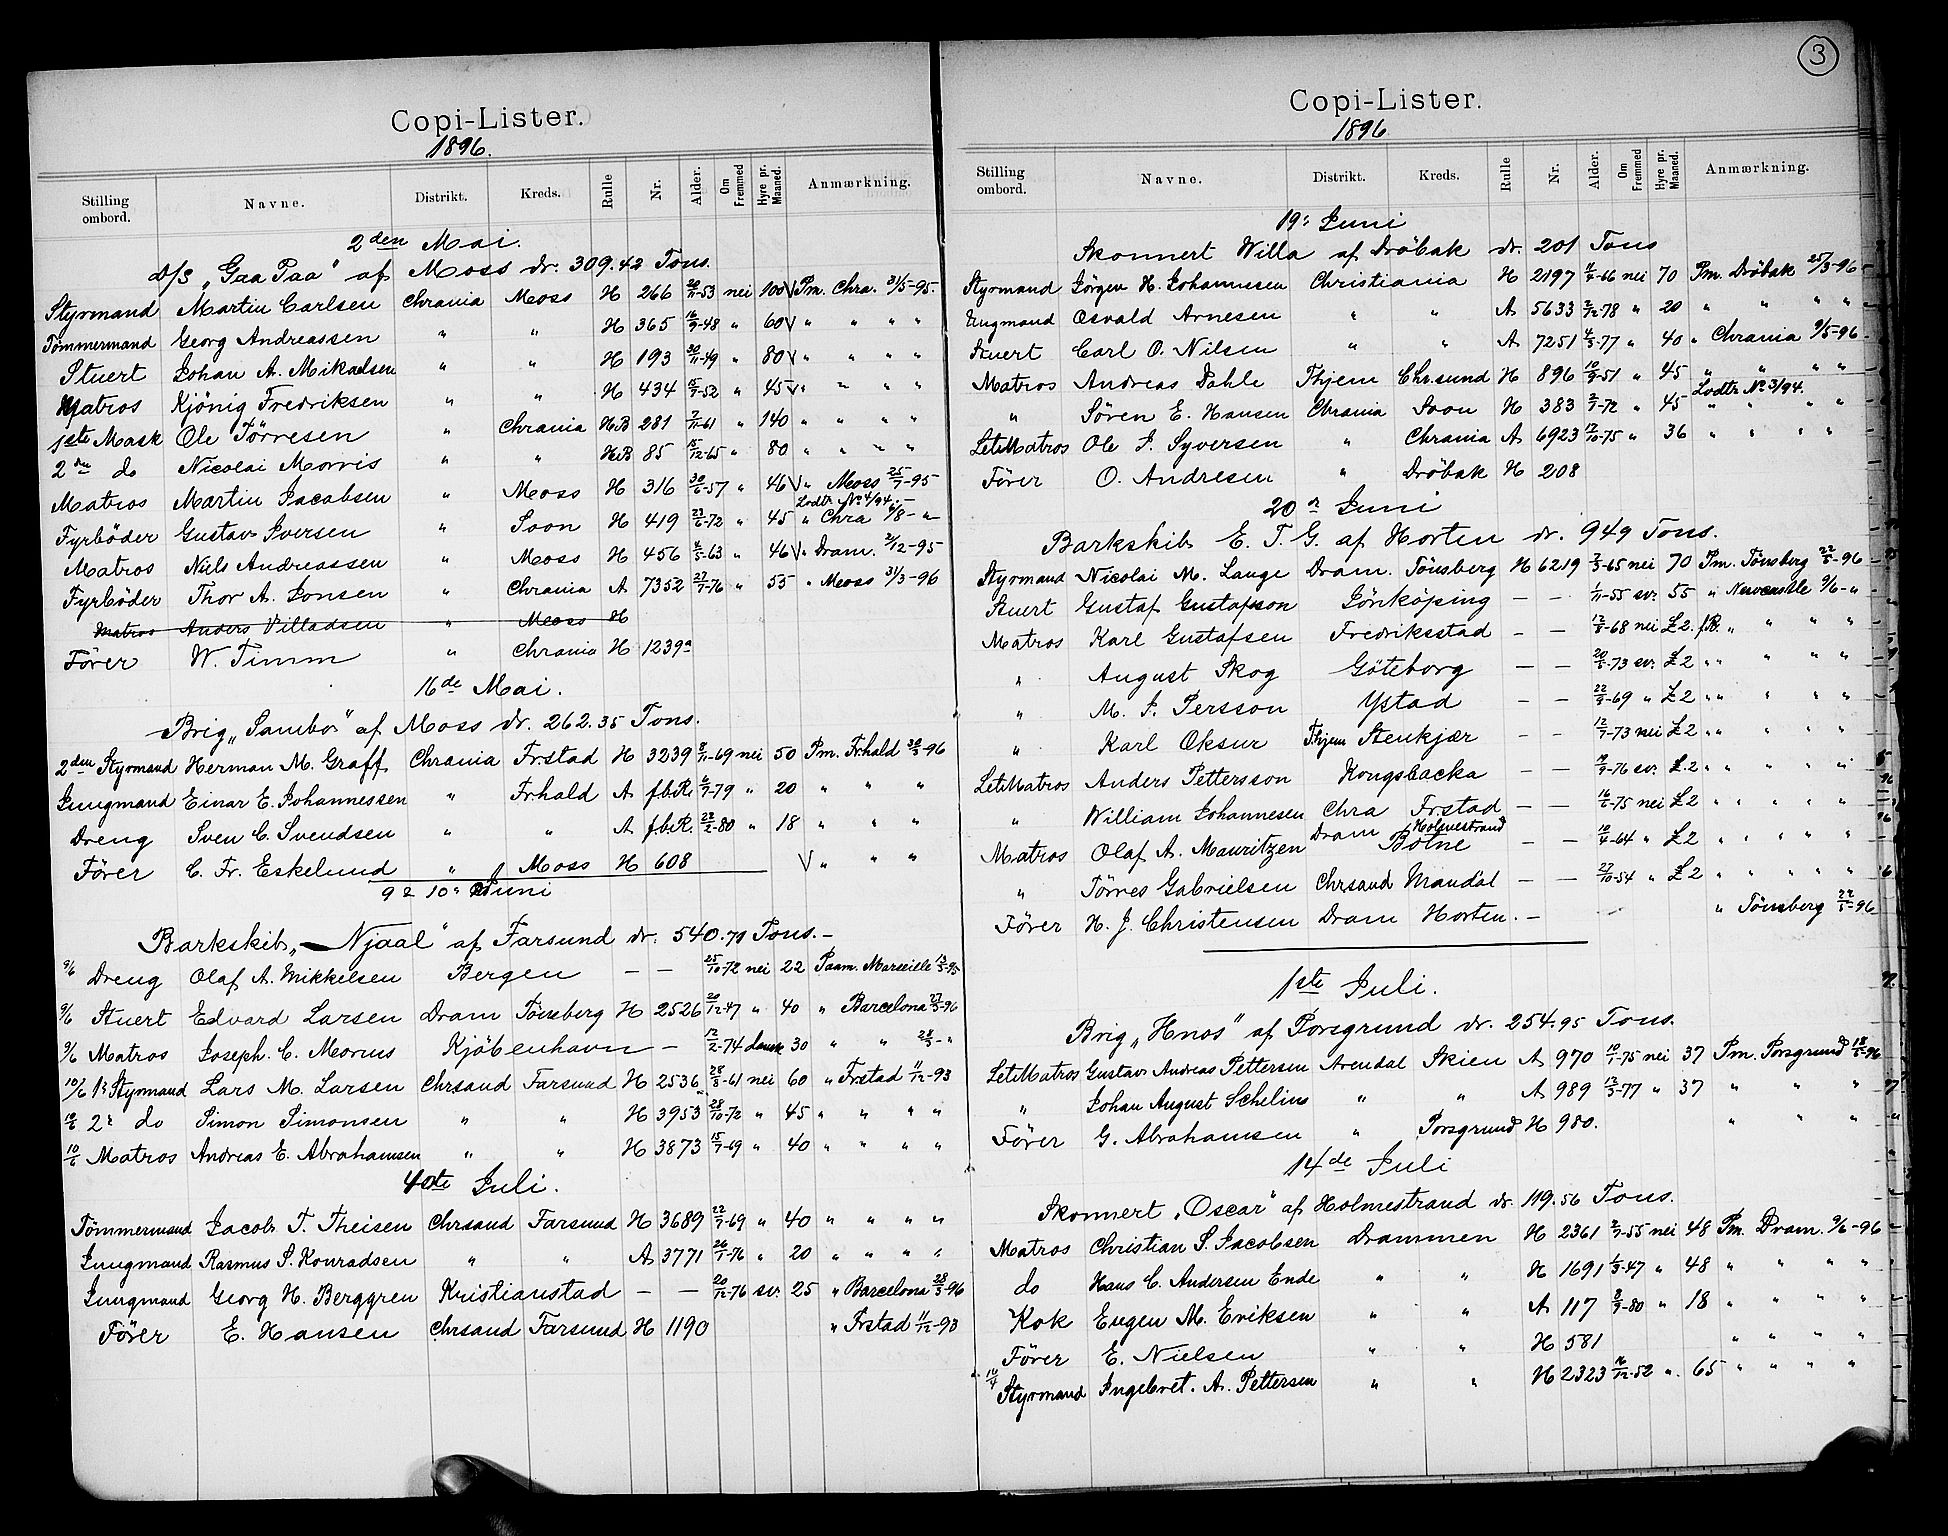 Copi-Lister.
1896.
Stilling ombord. Navne. Distrikt. Kreds. Rulle Nr. Alder. Om Fremmed Hyre pr. Maaned. Anmærkning.
2den Mai.
D/S „Gaa Paa" af Moss dr. 309.42 Tons.
Styrmand Martin Carlsen Chrania Moss H 266 -53 nei 100 V Pm. Chra. 31/5-95
Tömmermand Georg Andreassen " " H 365 -48 " 60 V " " " "
Stuert Johan A. Mikaelsen " " H 193 30/11-49 " 80 V " " " "
Matros Kjönig Fredriksen " " H 434 -52 " 45 V " " " "
1ste Mask Ole Törresen " Chrania HB 281 -61 " 140 " " " "
2den do Nicolai Morris " " HB 85 15/12-65 " 80 " " " "
Matros Martin Jacobsen " Moss H 316 30/6-57 " 46 V " Moss 25/7-95
Lodtr. No 4/94.
Fyrböder Gustav Iversen " Soon H 419 23/6-72 " 45 " Chra 6/8- "
Matros Niels Andreassen " Moss H 456 4/5-63 " 46 V " Dram. 2/12-95
Fyrböder Thor A. Jonsen " Chrania A 7352 27/7-76 " 55 " Moss 31/3-96
Matros Anders Villadsen " Moss H
Förer W. Timm " Chrania H 1239a
16de Mai.
Brig „Sambo" af Moss dr. 262.35 Tons.
2den Styrmand Herman M. Graff Chrania Frstad H 3239 8/11-69 nei 50 Pm. Frhald 30/3-96
Jungmand Einar E. Johannessen " Frhald A fbR. -79 " 20 " " "
Dreng Sven C. Svendsen " " A fbR. 22/2-80 " 18 " " "
Förer C. Fr. Eskelund " Moss H 608 V " " "
9 & 10 Juni
Barkskib „Njaal" af Farsund dr. 540.70 Tons.-
9/6 Dreng Olaf A. Mikkelsen Bergen — — 25/10-72 nei 22 Paam. Marseille -95
9/6 Stuert Edvard Larsen Dram Tönsberg H 2526 20/12-47 " 40 " Barcelona -96
9/6 Matros Joseph. C. Morius Kjöbenhavn — 12/2-74 dansk 30 " " "
10/6 1ste Styrmand Lars M. Larsen Chrsand Farsund H 2536 28/3-61 nei 60 " Frstad 11/12-93
10/6 2den do Simon Simonsen " " H 3953 28/10-72 " 45 " " " "
10/6 Matros Andreas E. Abrahamsen " " H 3873 15/7-69 " 40 " " " "
4de Juli.
Tömmermand Jacob T. Theisen Chrsand Farsund H 3689 22/7-69 " 40 " " " "
Jungmand Rasmus S. Konradsen " " A 3771 26/1-76 " 20 " " " "
Jungmand Georg H. Berggren Kristianstad — — 20/12-76 sv. 25 " Barcelona 28/3-96
Förer E. Hansen Chrsand Farsund H 1190 " Frstad 11/12-93
3
Copi-Lister.
1896
Stilling ombord. Navne. Distrikt. Kreds. Rulle Nr. Alder. Om Fremmed Hyre pr. Maaned. Anmærkning.
19: Juni
Skonnert Willa af Dröbak dr. 201 Tons
Styrmand Jörgen H. Johannesen Christiania H 2197 -66 nei 70 Pm. Dröbak 25/3-96
Ungmand Osvald Arnesen " " A 5633 2/12-78 " 20 " " " "
Stuert Carl O. Nilsen " " A 7251 4/3-77 " 40 " Chrania 9/5-96
Matros Andreas Dahle Thjem Chr.sund H 896 10/9-51 " 45 " " " "
Lodtr No 3/94.
" Sören E. Hansen Chrania Soon H 383 2/7-72 " 45 " " " "
LetMatros Ole J. Syversen " Chrania A 6923 17/10-75 " 36 " " " "
Förer O. Andresen " Dröbak H 208
20de Juni
Barkskib E. T. G. af Horten dr. 949 Tons.
Styrmand Nicolai M. Lange Dram. Tönsberg H 6219 7/5-65 nei 70 Pm. Tönsberg 22/5-96
Stuert Gustaf Gustafsson Jönköping — — 1/11-55 sv. 55 " Newcastle 9/6- "
Matros Karl Gustafsen Fredriksstad — — 12/8-68 nei £2. " " " "
" August Skog Göteborg — — 20/5-73 sv. £2 " " " " "
" M. J. Persson Ystad — — 22/9-69 " £2 " " " " "
" Karl Oksur Thjem Stenkjær — — 12/7-73 nei £2 " " " " "
LetMatros Anders Pettersson Kongsbacka — — -76 sv. £.2 " " " " "
" William Johannesen Chra Frstad — — 16/6-75 nei £2 " " " " "
Holmestrand
Matros Olaf A. Mauritzen Dram Botne — — 10/4-64 " £2 " " " " "
" Törres Gabrielsen Chrsand Mandal — — 27/10-54 " £2 " " " " "
Förer H. J. Christensen Dram Horten. — " Tönsberg 22/5-96
1ste Juli.
Brig „Hnos" af Porsgrund dr. 254.95 Tons.
LetMatros Gustav Andreas Pettersen Arendal Skien A 970 10/1-75 nei 37 Pm. Porsgrund 18/5-96
" Johan August Schelin " " A 989 12/3-77 " 37 " " "
Förer G. Abrahamsen " Porsgrund H 980. " " "
14de Juli
Skonnert „Oscar" af Holmestrand dr. 119.56 Tons.
Matros Christian S. Jacobsen Drammen H 2361 2/7-55 nei 48 Pm. Dram. 9/6-96
do Hans C. Andersen Ende " " H 1691 1/3-47 " 48 " " " "
Kok Eugen M. Eriksen " " A 117 8/9-80 " 18 " " " "
Förer E. Nielsen " " H 581 " " " "
Styrmand Ingebret. A. Pettersen " " H 2323 16/12-52 " 65 " " " "